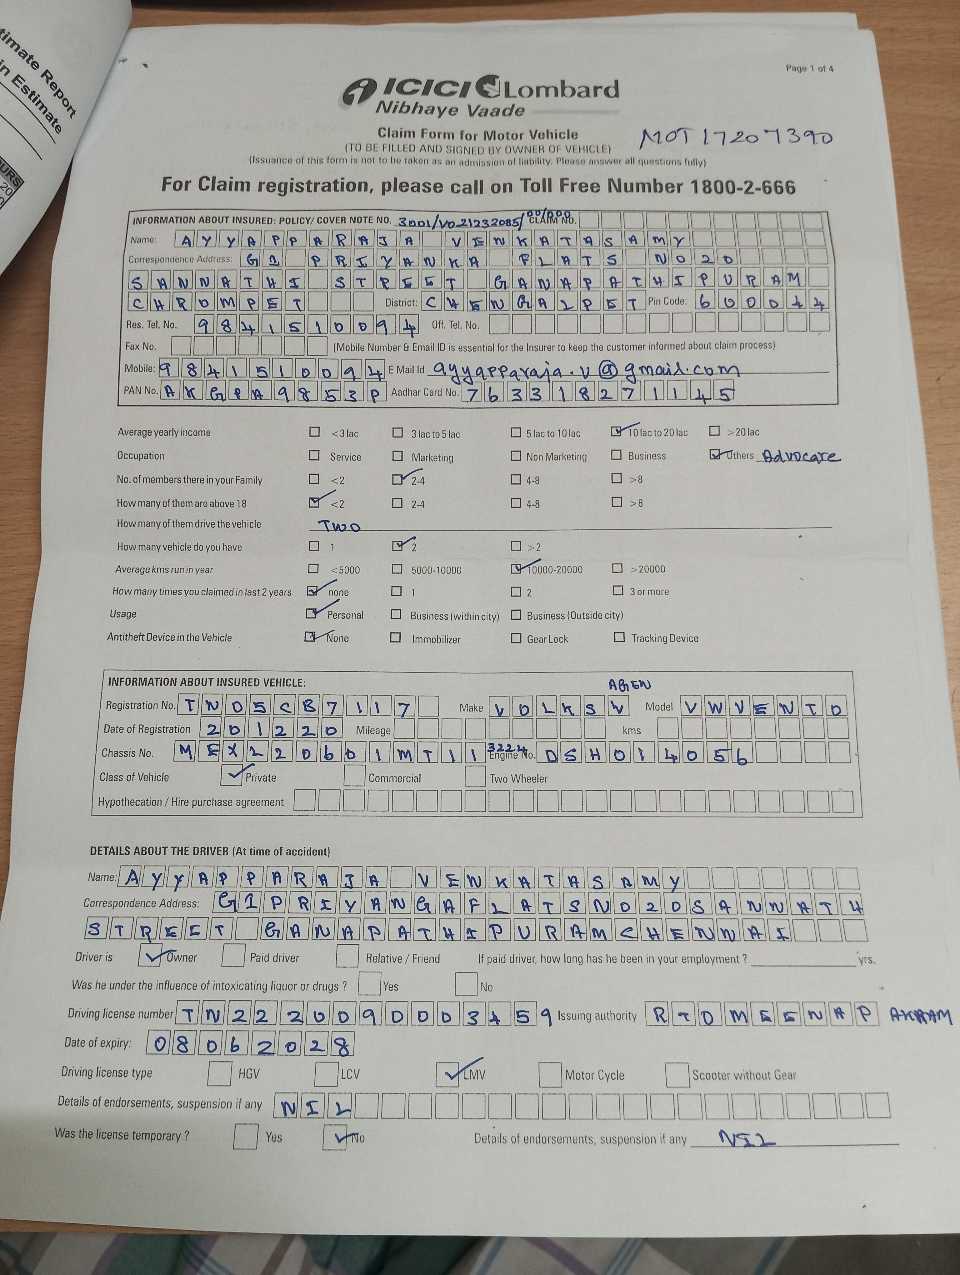 timate Report
in Estimate
Page 1 of 4
ICICI Lombard
Nibhaye Vaade
Claim Form for Motor Vehicle MOT17207390
(TO BE FILLED AND SIGNED BY OWNER OF VEHICLE)
(Issuance of this form is not to be taken as an admission of liability. Please answer all questions fully)
For Claim registration, please call on Toll Free Number 1800-2-666
INFORMATION ABOUT INSURED: POLICY/ COVER NOTE NO. 3001/VO21232085/ 00/000 CLAIM NO.
Name: AYYAPPARAJA VENKATASAMY
Correspondence Address: G1 PRIYANKA FLATS NO20
SANNATHI STREET GANAPATHIPURAM
CHROMPET District: CHENGALPET Pin Code: 600044
Res. Tel. No. 9841510094 Off. Tel. No.
Fax No. (Mobile Number & Email ID is essential for the Insurer to keep the customer informed about claim process)
Mobile: 9841510094 E Mail Id ayyapparaja.v@gmail.com
PAN No. AKGPA9853P Aadhar Card No. 763318271145
Average yearly income <3 lac 3 lac to 5 lac 5 lac to 10 lac 10 lac to 20 lac >20 lac
Occupation Service Marketing Non Marketing Business Others Advocare
No. of members there in your Family <2 2-4 4-8 >8
How many of them are above 18 <2 2-4 4-8 >8
How many of them drive the vehicle TWO
How many vehicle do you have 1 2 >2
Average kms run in year <5000 5000-10000 10000-20000 >20000
How many times you claimed in last 2 years none 1 2 3 or more
Usage Personal Business (within city) Business (Outside city)
Antitheft Device in the Vehicle None Immobilizer Gear Lock Tracking Device
INFORMATION ABOUT INSURED VEHICLE: AGEN
Registration No. TN05CB7117 Make VOLKSW Model VWVENTO
Date of Registration 201220 Mileage kms
Chassis No. MEX220601MT11 3224 Engine No. DSH014056
Class of Vehicle Private Commercial Two Wheeler
Hypothecation / Hire purchase agreement
DETAILS ABOUT THE DRIVER (At time of accident)
Name: AYYAPPARAJA VENKATASAMY
Correspondence Address: G1PRIYANGAFLATSNO20SANNATH
STREET GANAPATHIPURAMCHENNAI
Driver is Owner Paid driver Relative / Friend If paid driver, how long has he been in your employment ? yrs.
Was he under the influence of intoxicating liquor or drugs ? Yes No
Driving license number TN2220090003459 Issuing authority RTOMEENAP AKRAM
Date of expiry: 08062028
Driving license type HGV LCV LMV Motor Cycle Scooter without Gear
Details of endorsements, suspension if any NIL
Was the license temporary ? Yes No Details of endorsements, suspension if any NIL